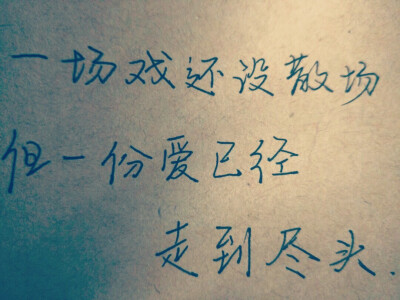 一场戏还没散场
但一份爱已经
走到尽头.